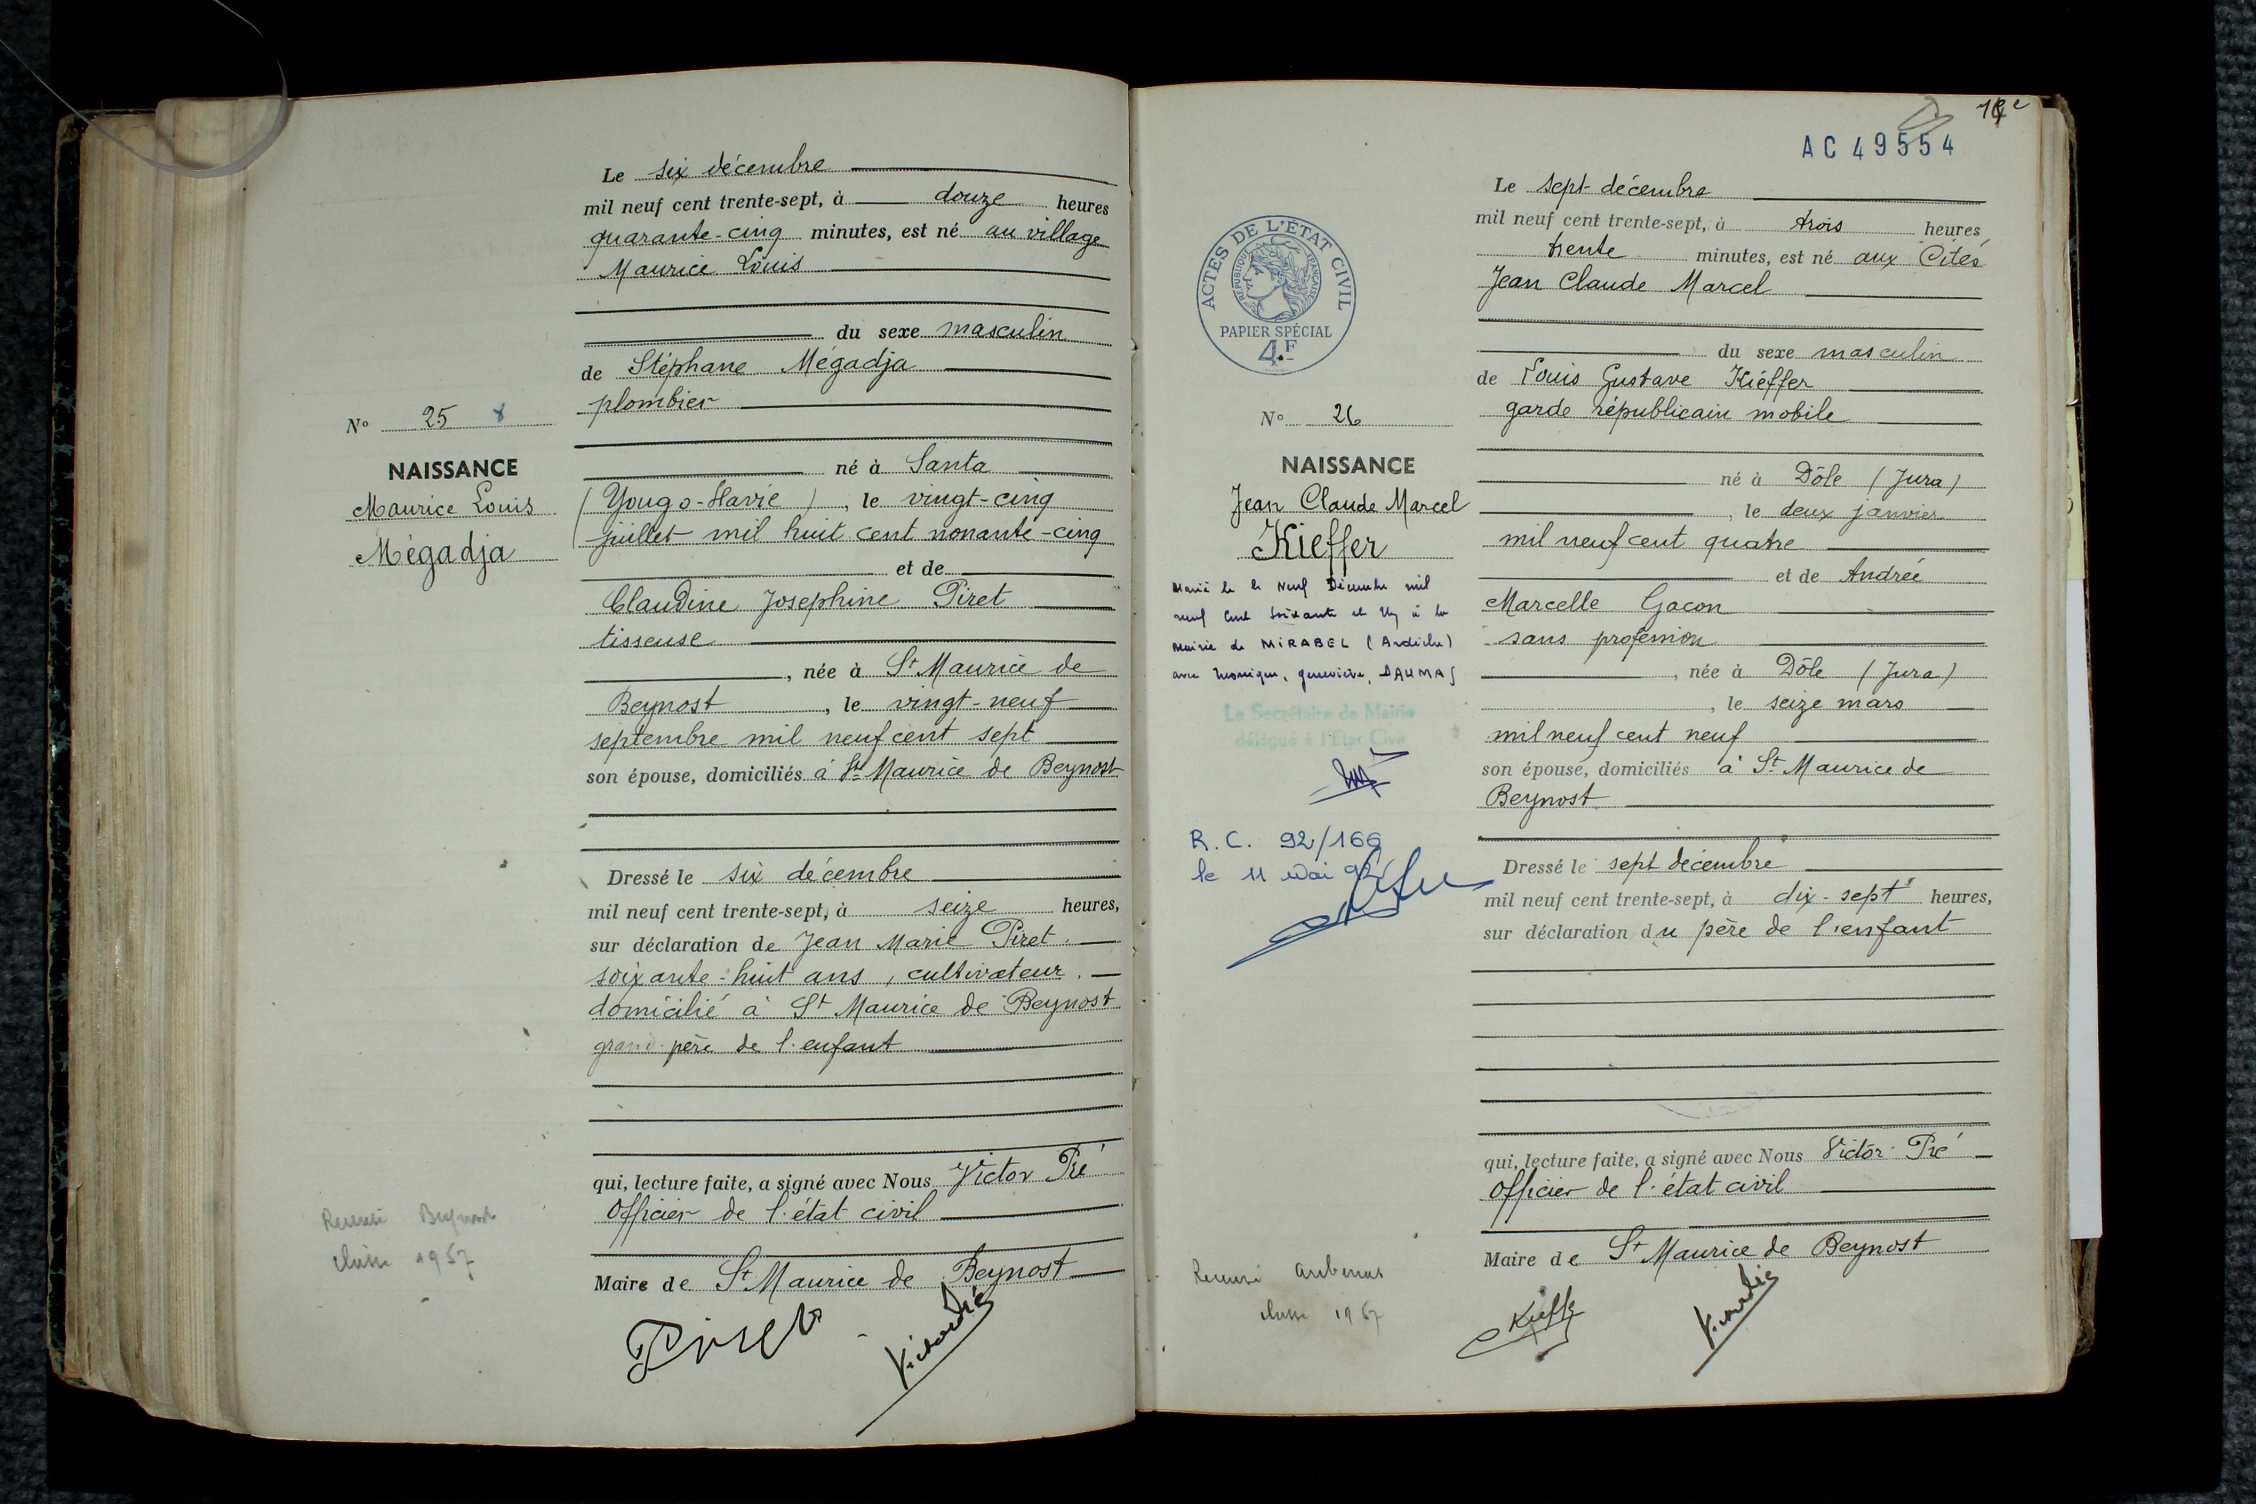 Le six décembre
mil neuf cent trente-sept, à douze heures
quarante-cinq minutes, est né au village
Maurice Louis
du sexe masculin
de Stéphane Mégadja
plombier
né à Santa
(Yougo-Slavie), le vingt-cinq
juillet mil huit cent nonante-cinq
et de
Claudine Josephine Piret
tisseuse
, née à St Maurice de
Beynost, le vingt-neuf
septembre mil neuf cent sept
son épouse, domiciliés à St Maurice de Beynost
Dressé le six décembre
mil neuf cent trente-sept, à seize heures,
sur déclaration de Jean Marie Piret.
soixante-huit ans, cultivateur.
domicilié à St Maurice de Beynost
grand-père de l'enfant
qui, lecture faite, a signé avec Nous Victor Pré
Officier de l'état civil
Maire de St Maurice de Beynost
Piret
N° 25
NAISSANCE
Maurice Louis
Mégadja
Recensé Beynost
classe 1957
AC 49554
ACTES DE L'ÉTAT CIVIL
RÉPUBLIQUE FRANÇAISE
PAPIER SPÉCIAL
4F
N° 26
NAISSANCE
Jean Claude Marcel
Kieffer
Marié le le Neuf Décembre mil
neuf cent soixante et Un à la
Mairie de MIRABEL (Ardèche)
avec Monique, geneviève, DAUMAS
Le Secrétaire de Mairie
délégué à l'Etat Civil
R.C. 92/166
le 11 Mai 92
Recensé Aubenas
classe 1957
Le sept décembre
mil neuf cent trente-sept, à trois heures
trente minutes, est né aux Cités
Jean Claude Marcel
du sexe masculin
de Louis Gustave Kiéffer
garde républicain mobile
né à Dôle (Jura)
, le deux janvier
mil neuf cent quatre
et de Andrée
Marcelle Gacon
sans profession
, née à Dôle (Jura)
, le seize mars
mil neuf cent neuf
son épouse, domiciliés à St Maurice de
Beynost
Dressé le sept décembre
mil neuf cent trente-sept, à dix-sept heures,
sur déclaration du père de l'enfant
qui, lecture faite, a signé avec Nous Victor Pré
Officier de l'état civil
Maire de St Maurice de Beynost
Kieffer